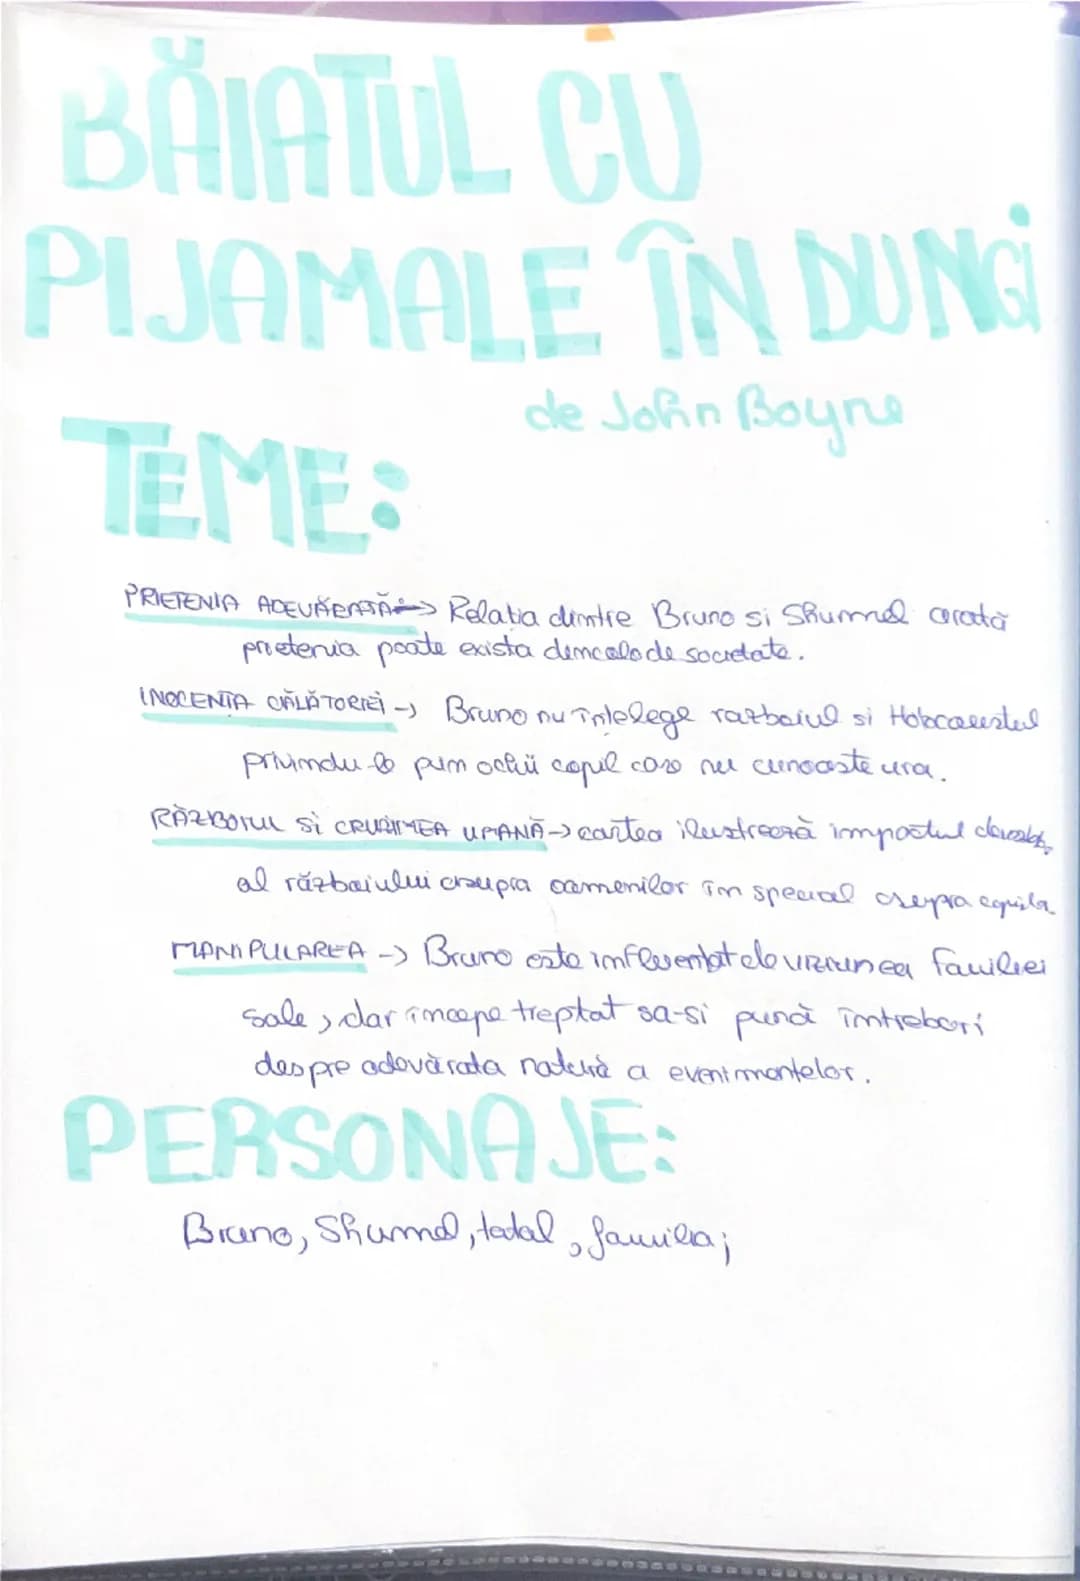 BĂIATUL CU
PIJAMALE ÎN DUNGI
de John Boyne
TEME:
PRIETENIA ADEVĂRATĂ -> Relatia dintre Bruno si Shumel arată
prietenia poate exista dincolo de societate.
INOCENTA CĂLĂTORIEI -> Bruno nu întelege razboiul si Holocaustul
privindu-lo prin ochii copil care nu cunoaste ura.
RĂZBOIUL SI CRUZIMEA UMANĂ -> cartea ilustrează impactul
al războiului asupra oamenilor în special asupra
MANIPULAREA -> Bruno este influentat de viziunea familiei
sale, dar începe treptat sa-si pună întrebari
despre adevărata natură a evenimentelor.
PERSONAJE:
Bruno, Shumel, tatal, familia;